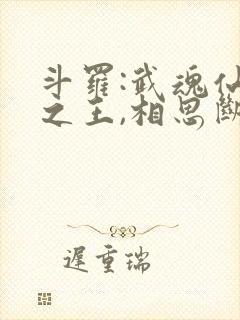 斗羅:武魂仙
之王,相思斷
遲重瑞